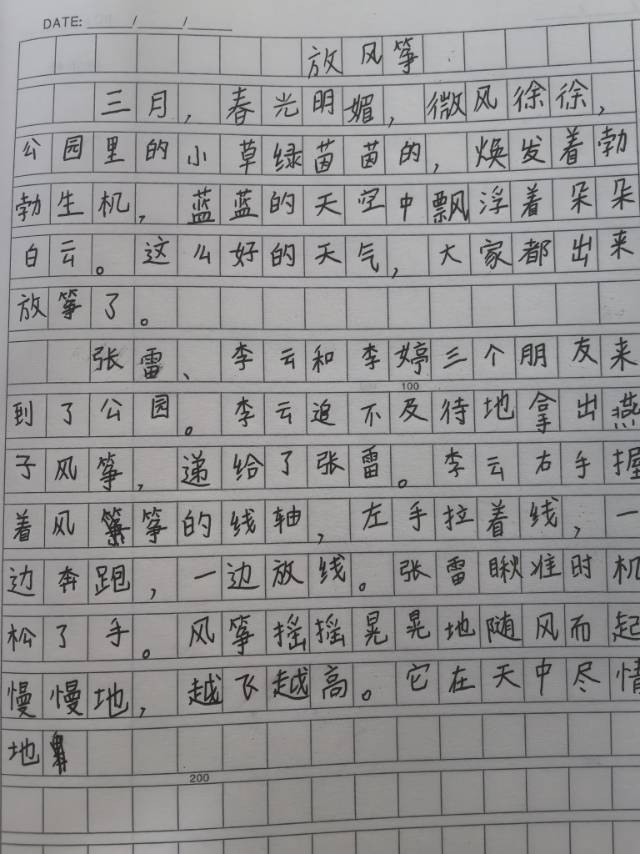 DATE: ____/____/____
放风筝
三月，春光明媚，微风徐徐，
公园里的小草绿茵茵的，焕发着勃
勃生机，蓝蓝的天空中飘浮着朵朵
白云。这么好的天气，大家都出来
放筝了。
张雷、李云和李婷三个朋友来
100
到了公园。李云追不及待地拿出燕
子风筝，递给了张雷。李云右手握
着风筝的线轴，左手拉着线，一
边奔跑，一边放线。张雷瞅准时机
松了手。风筝摇摇晃晃地随风而起
慢慢地，越飞越高。它在天中尽情
地
200